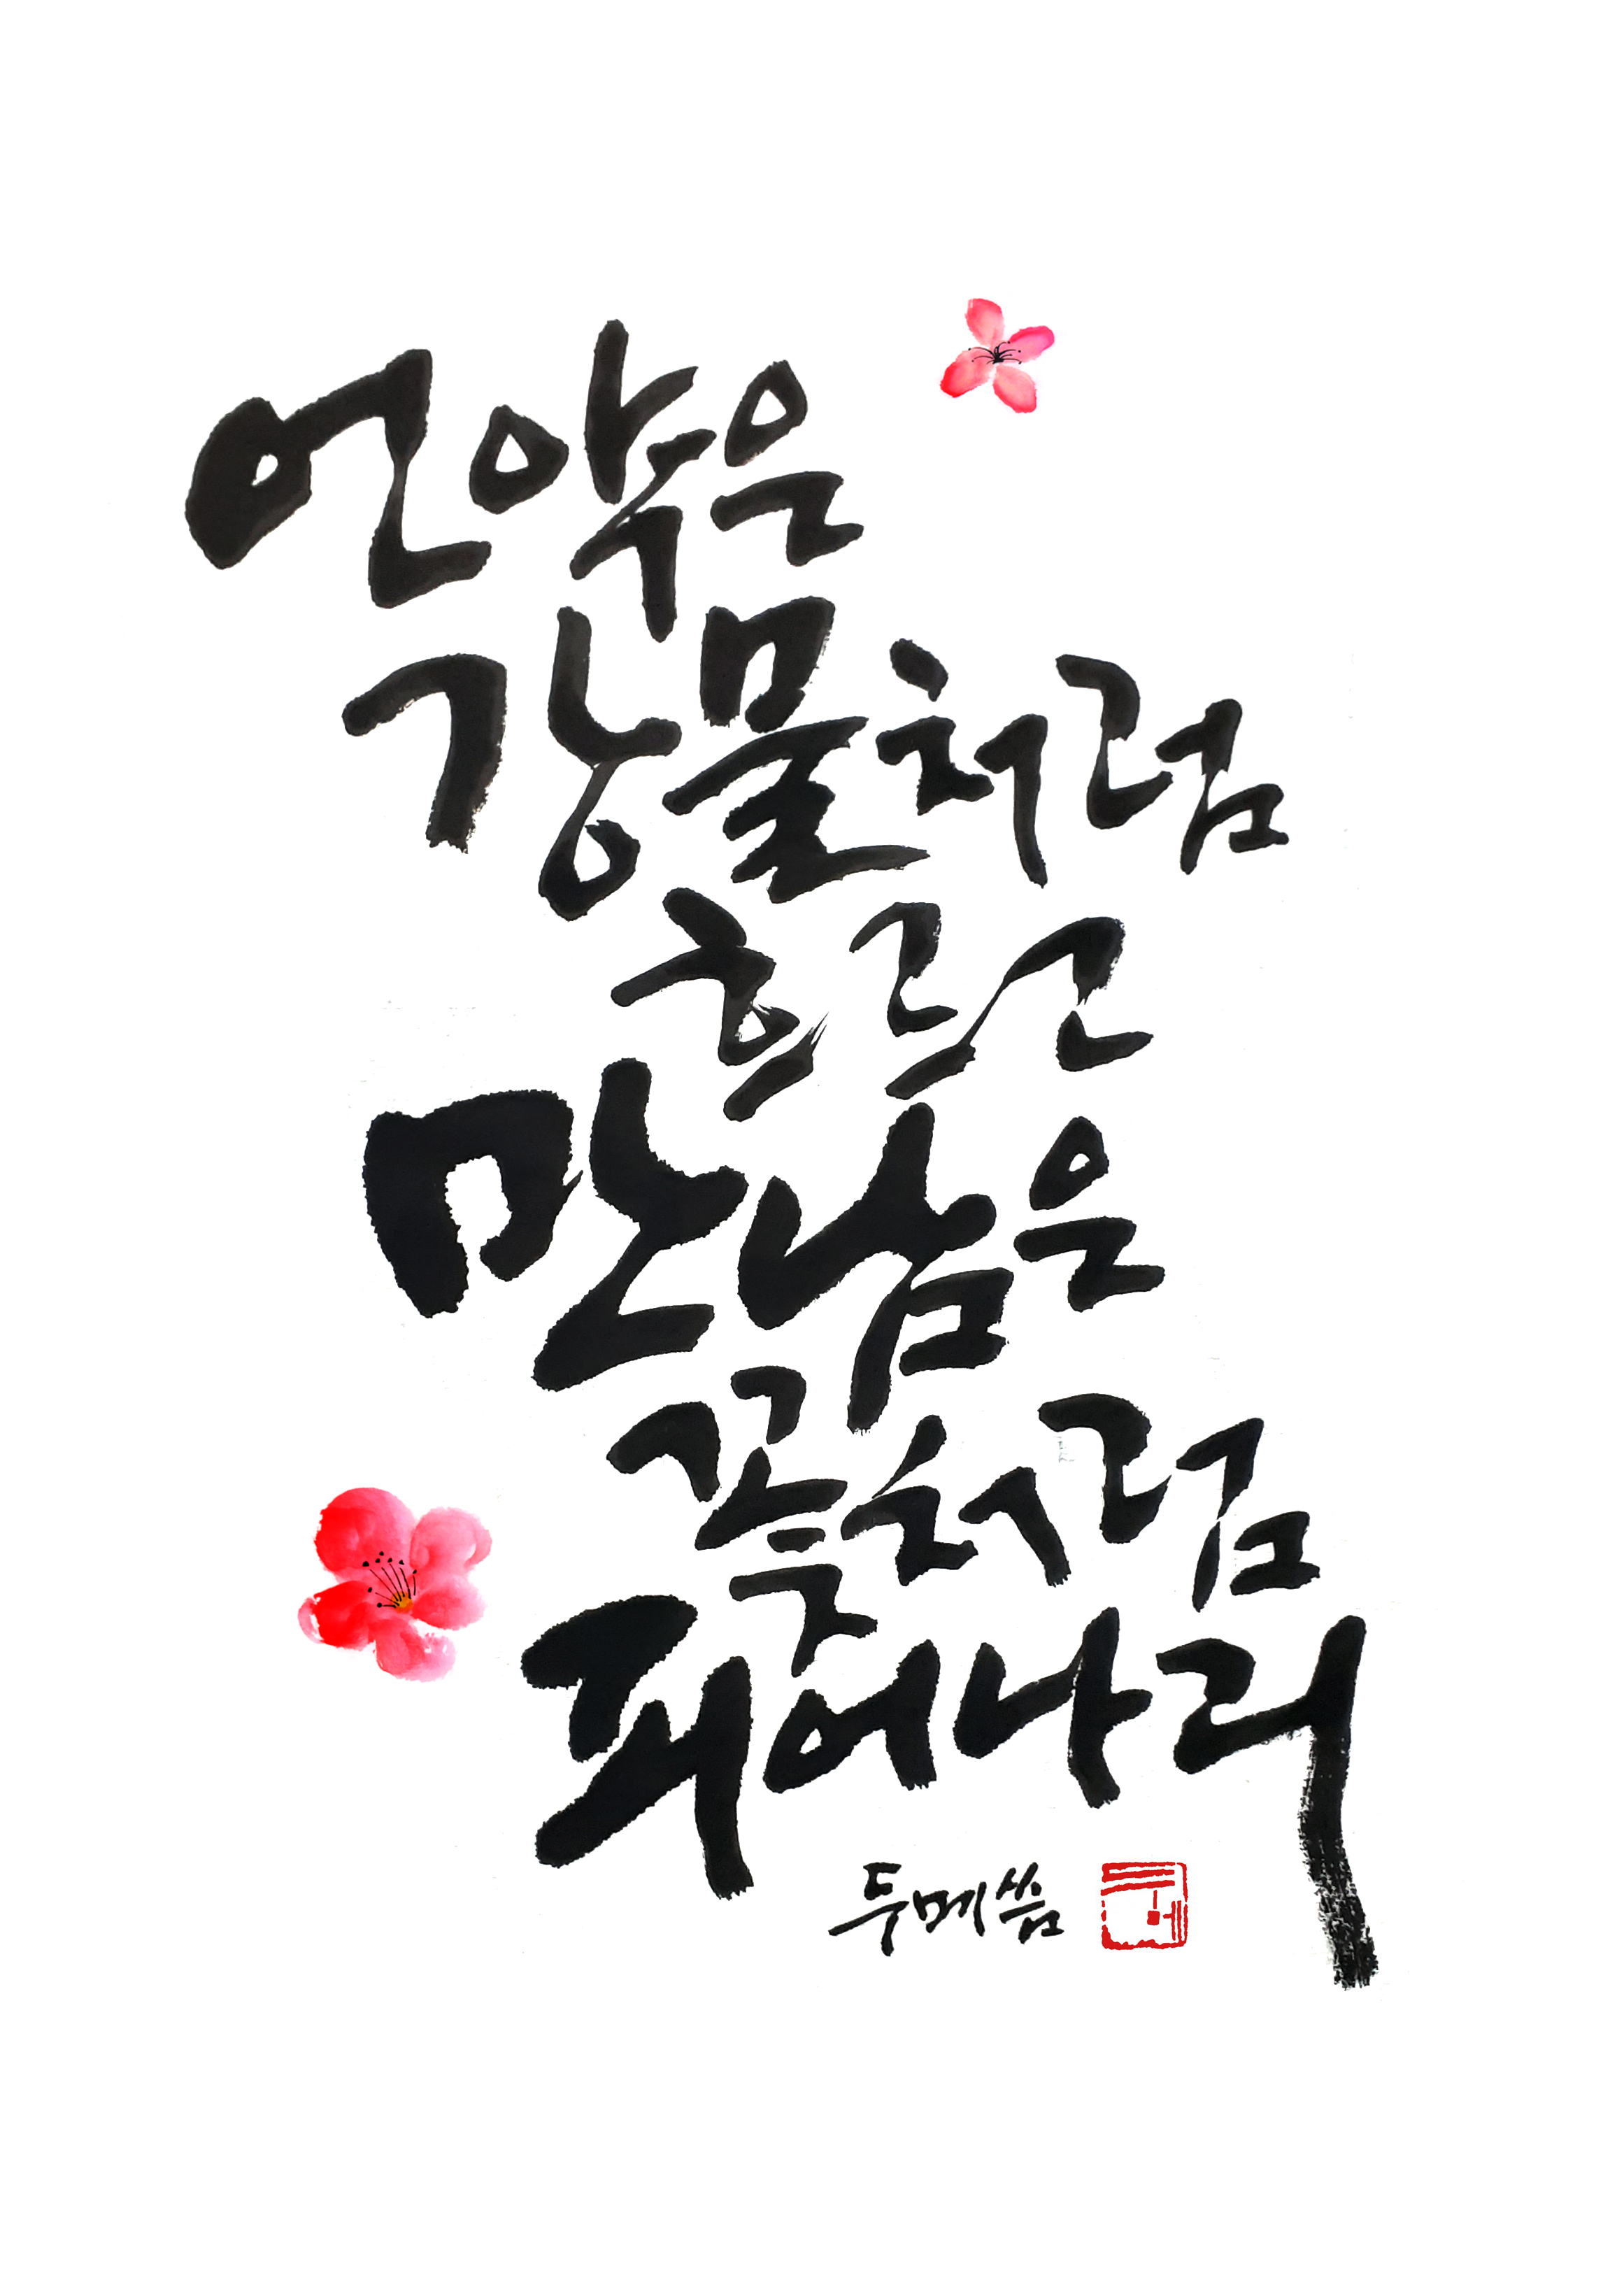 언약은
강물처럼
흐르고
만남은
꽃처럼
피어나리
두메 씀
두메